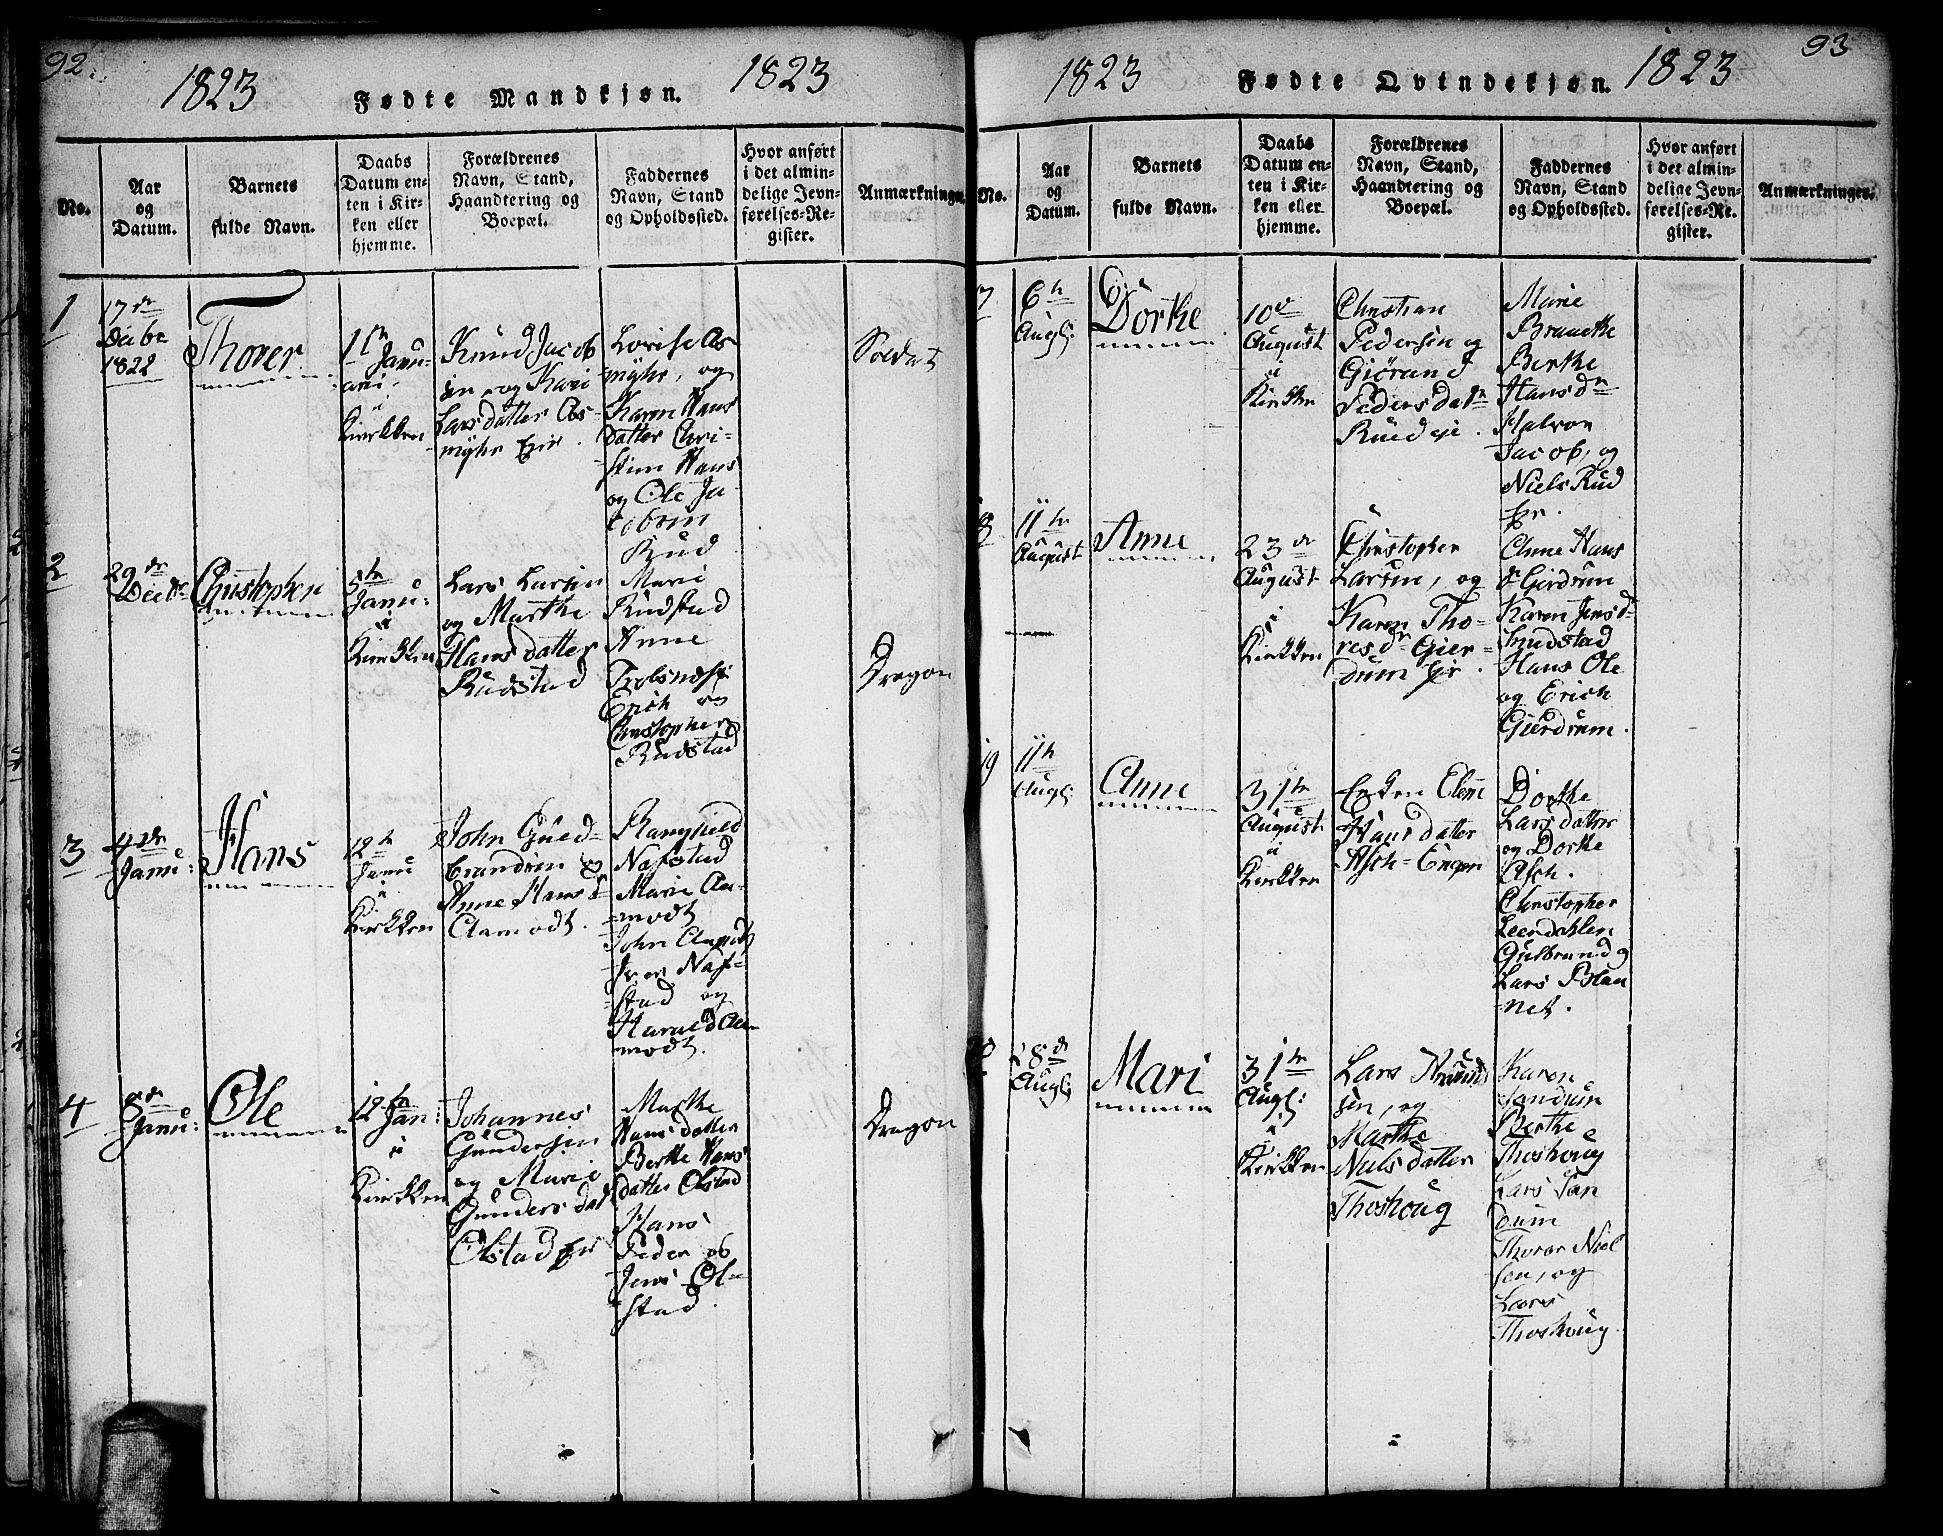 92.
1823
Fødte Mandkjøn.
1823
No.
Aar
og
Datum.
Barnets
fulde Navn.
Daabs
Datum en-
ten i Kir-
ken eller
hjemme.
Forældrenes
Navn, Stand,
Haandtering og
Boepæl.
Faddernes
Navn, Stand
og Opholdssted.
Hvor anført
i det almin-
delige Jevn-
førelses-Re-
gister.
Anmærkninger.
1
17de
Decbr
1822
Thorer
1te Janu-
ari
i
Kirkken
Knud Jacob
sen og Kari
Larsdatter As-
myhr Eier.
Lovise As
myhr, og
Karen Hans
datter Chri-
stine Hans
og Ole Ja-
cobsen
Rud
Soldat
2
29de
Decbr
Christopher
5te
Janu:
i
Kirkken
Lars Larsen
og Marthe
Hansdatter
Rudstad
Mari
Rudstad
Anne
Erich og
Christopher
Rudstad
Dragon
3
4de
Janu:
Hans
12te
Janu
i
Kirkken
John Gued-
brandsen og
Anne Hansd
Aamodt.
Nafstad
Marie Aa-
modt
John
Naf-
stad og
Harald Aa-
modt.
4
8de
Janu:
Ole
12te Jan:
i
Kirkken
Johannes
Gundersen
og Mari
Gundersdat
Olstad Eier
Marthe
Hansdatter
Berthe Hans
datter Olstad
Hans
Peder og
Jens Ol-
stad.
Dragon
93
1823
Fødte Qvindekjøn.
1823
No.
Aar
og
Datum.
Barnets
fulde Navn.
Daabs
Datum en-
ten i Kir-
ken eller
hjemme.
Forældrenes
Navn, Stand,
Haandtering og
Boepæl.
Faddernes
Navn, Stand
og Opholdssted.
Hvor anført
i det almin-
delige Jevn-
førelses-Re-
gister.
Anmærkninger.
7
6te
Augt:
Dorthe
10de
August
i
Kirkken
Christian
Pedersen og
Giørand
Pedersdatr
Rud
Marie
Berthe
Hansdr
Halvor
Jacob, og
Niels Rud
8
11te
August
Anne
23de
August
i
Kirkken
Christopher
Larsen, og
Karen Tho-
resdr Gier-
drum Eier.
Anne Hans
dr Gierdrum
Karen Jensd-
Rudstad
Hans Ole
og Erich
Gierdrum.
19
11te
Augt:
Anne
31te
August
i
Kirkken
Enken Elene
Hansdatter
Asch-Engen
Dorthe
Larsdatter
og Dorthe
Asch.
Christopher
Leerdahlen
Gulbrand og
Lars Plan
net.
28de
Augt:
Mari
31te
Augt:
i
Kirkken
Lars
sen, og
Marthe
Nielsdatter
Thoshoug
Karen
Sandum
Berthe
Thoshoug
Lars San
dum
Thorer Niel
sen, og
Lars
Thoshoug.